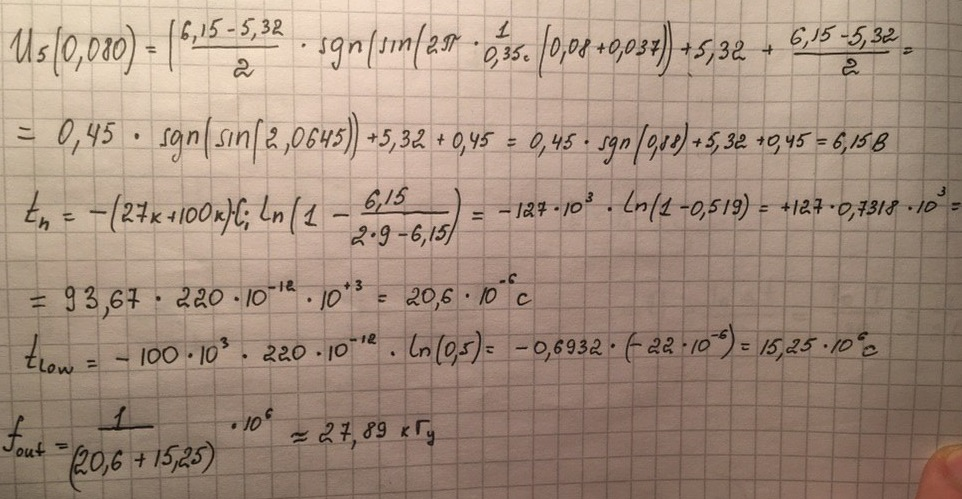 U5(0,080) = (6,15 - 5,32 / 2 · sgn(sin(2π · 1 / 0,35с (0,08 + 0,037)) + 5,32 + 6,15 - 5,32 / 2 =
= 0,45 · sgn(sin(2,0645)) + 5,32 + 0,45 = 0,45 · sgn(0,88) + 5,32 + 0,45 = 6,15 В
tn = -(27к + 100к)·Ci ln(1 - 6,15 / 2·9 - 6,15) = -127·10³ · ln(1 - 0,519) = +127·0,7318·10³ =
= 93,67 · 220·10⁻¹² · 10⁺³ = 20,6 · 10⁻⁶ с
tlow = -100·10³ · 220·10⁻¹² · ln(0,5) = -0,6932 · (-22·10⁻⁶) = 15,25 · 10⁶ с
fout = 1 / (20,6 + 15,25) · 10⁶ ≈ 27,89 кГц